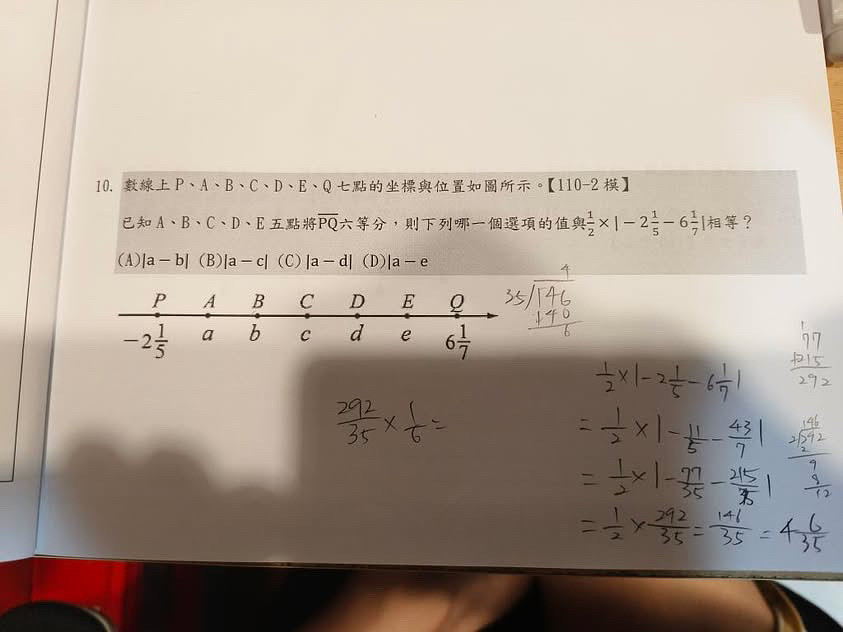 10. 數線上 P、A、B、C、D、E、Q 七點的坐標與位置如圖所示。【110-2 模】
已知 A、B、C、D、E 五點將PQ六等分，則下列哪一個選項的值與1/2×|−2 1/5−6 1/7|相等？
(A)|a−b| (B)|a−c| (C) |a−d| (D)|a−e
P A B C D E Q
−2 1/5 a b c d e 6 1/7
4
35/146
140
6
292/35 × 1/6 =
1/2×|−2 1/5−6 1/7|
= 1/2×|−11/5−43/7|
= 1/2×|−77/35−215/35|
= 1/2×292/35=146/35=4 6/35
1
77
+215
292
146
2/292
2
9
8
12